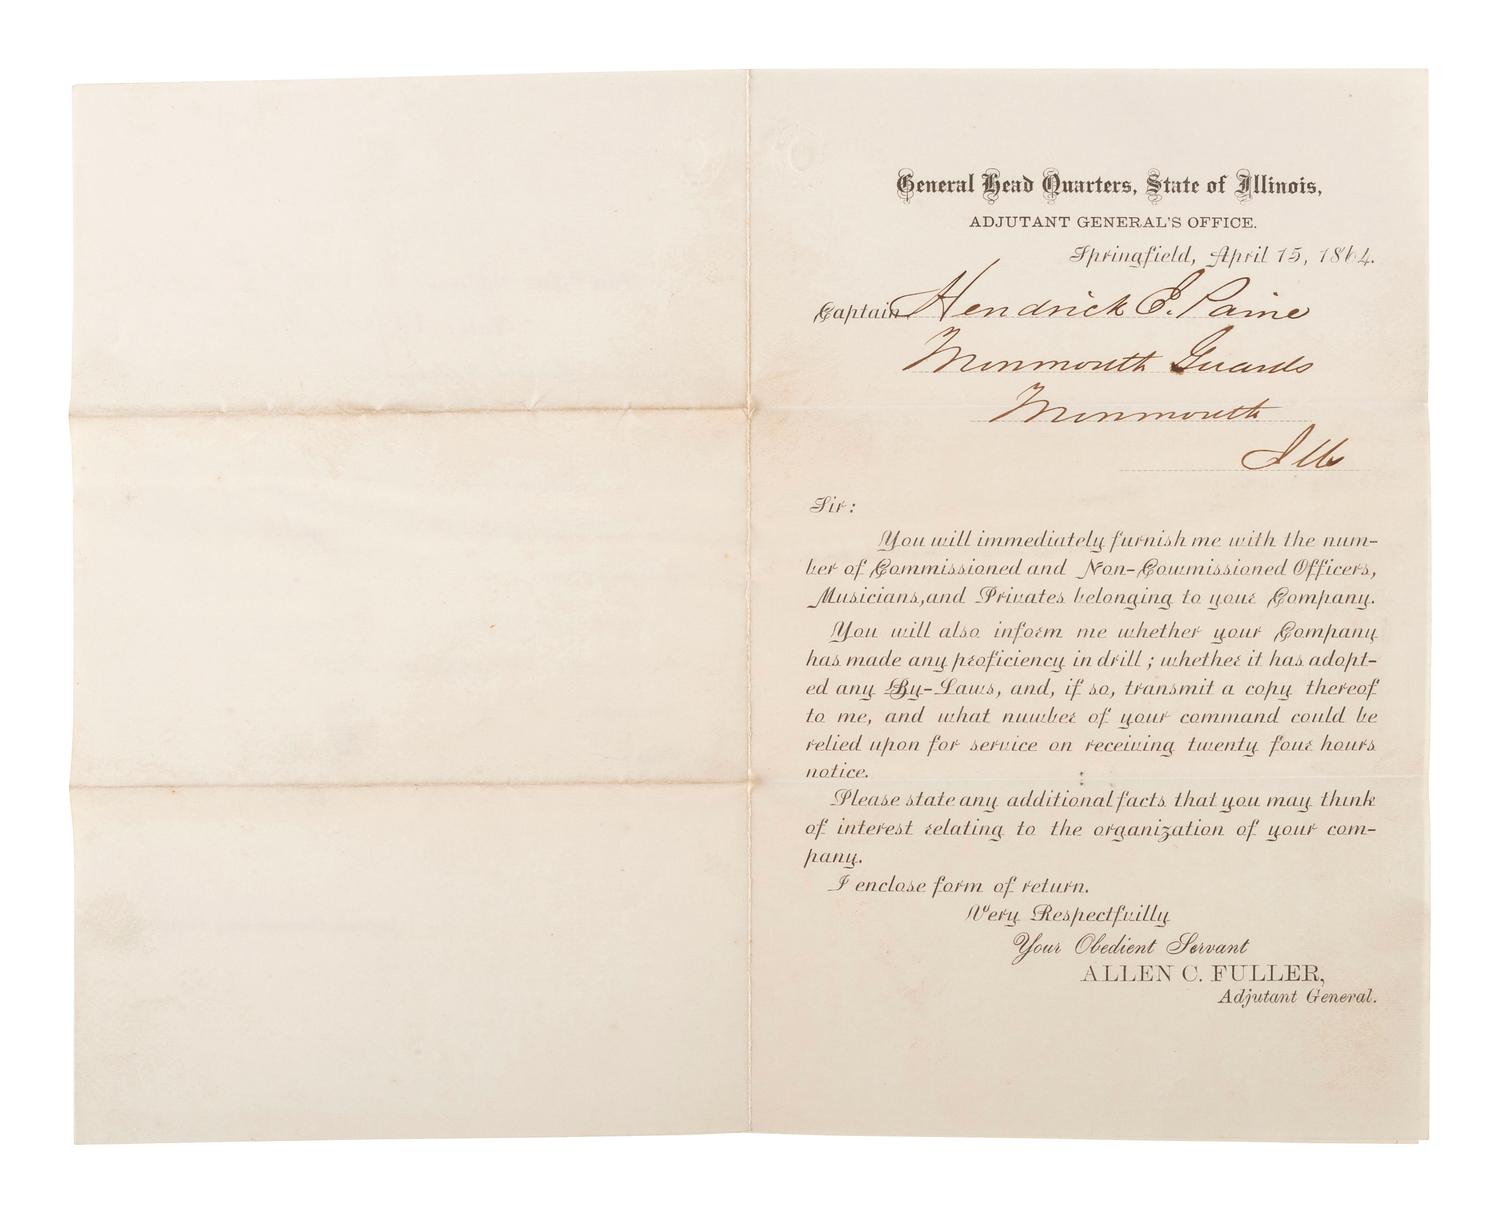 General Head Quarters, State of Illinois,
ADJUTANT GENERAL'S OFFICE.
Springfield, April 15, 1864.
Captain Hendrick E. Paine
Monmouth Guards
Monmouth
Ills
Sir:
You will immediately furnish me with the num-
ber of Commissioned and Non-Commissioned Officers,
Musicians, and Privates belonging to your Company.
You will also inform me whether your Company
has made any proficiency in drill; whether it has adopt-
ed any By-Laws, and, if so, transmit a copy thereof
to me, and what number of your command could be
relied upon for service on receiving twenty four hours
notice.
Please state any additional facts that you may think
of interest relating to the organization of your com-
pany.
I enclose form of return.
Very Respectfully
Your Obedient Servant
ALLEN C. FULLER,
Adjutant General.